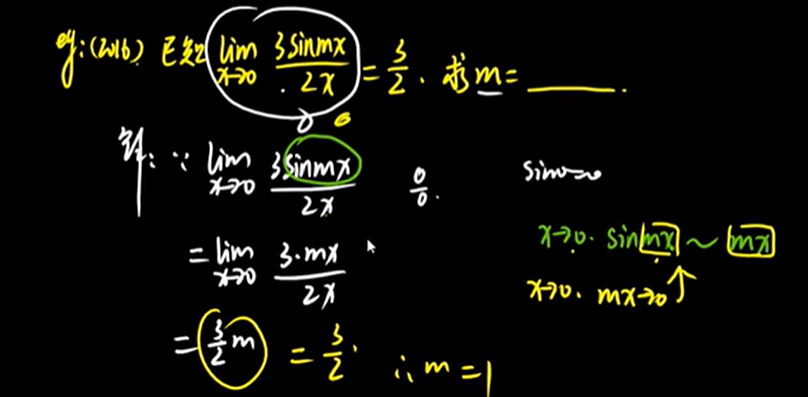 eg:(2016) 已知 lim x→0 3sinmx / 2x = 3/2. 求 m = ______.
0 0
解: ∵ lim x→0 3sinmx / 2x 0/0. sin0=0
= lim x→0 3·mx / 2x x→0. sin mx ~ mx
x→0. mx→0 ↑
= 3/2 m = 3/2. ∴ m = 1